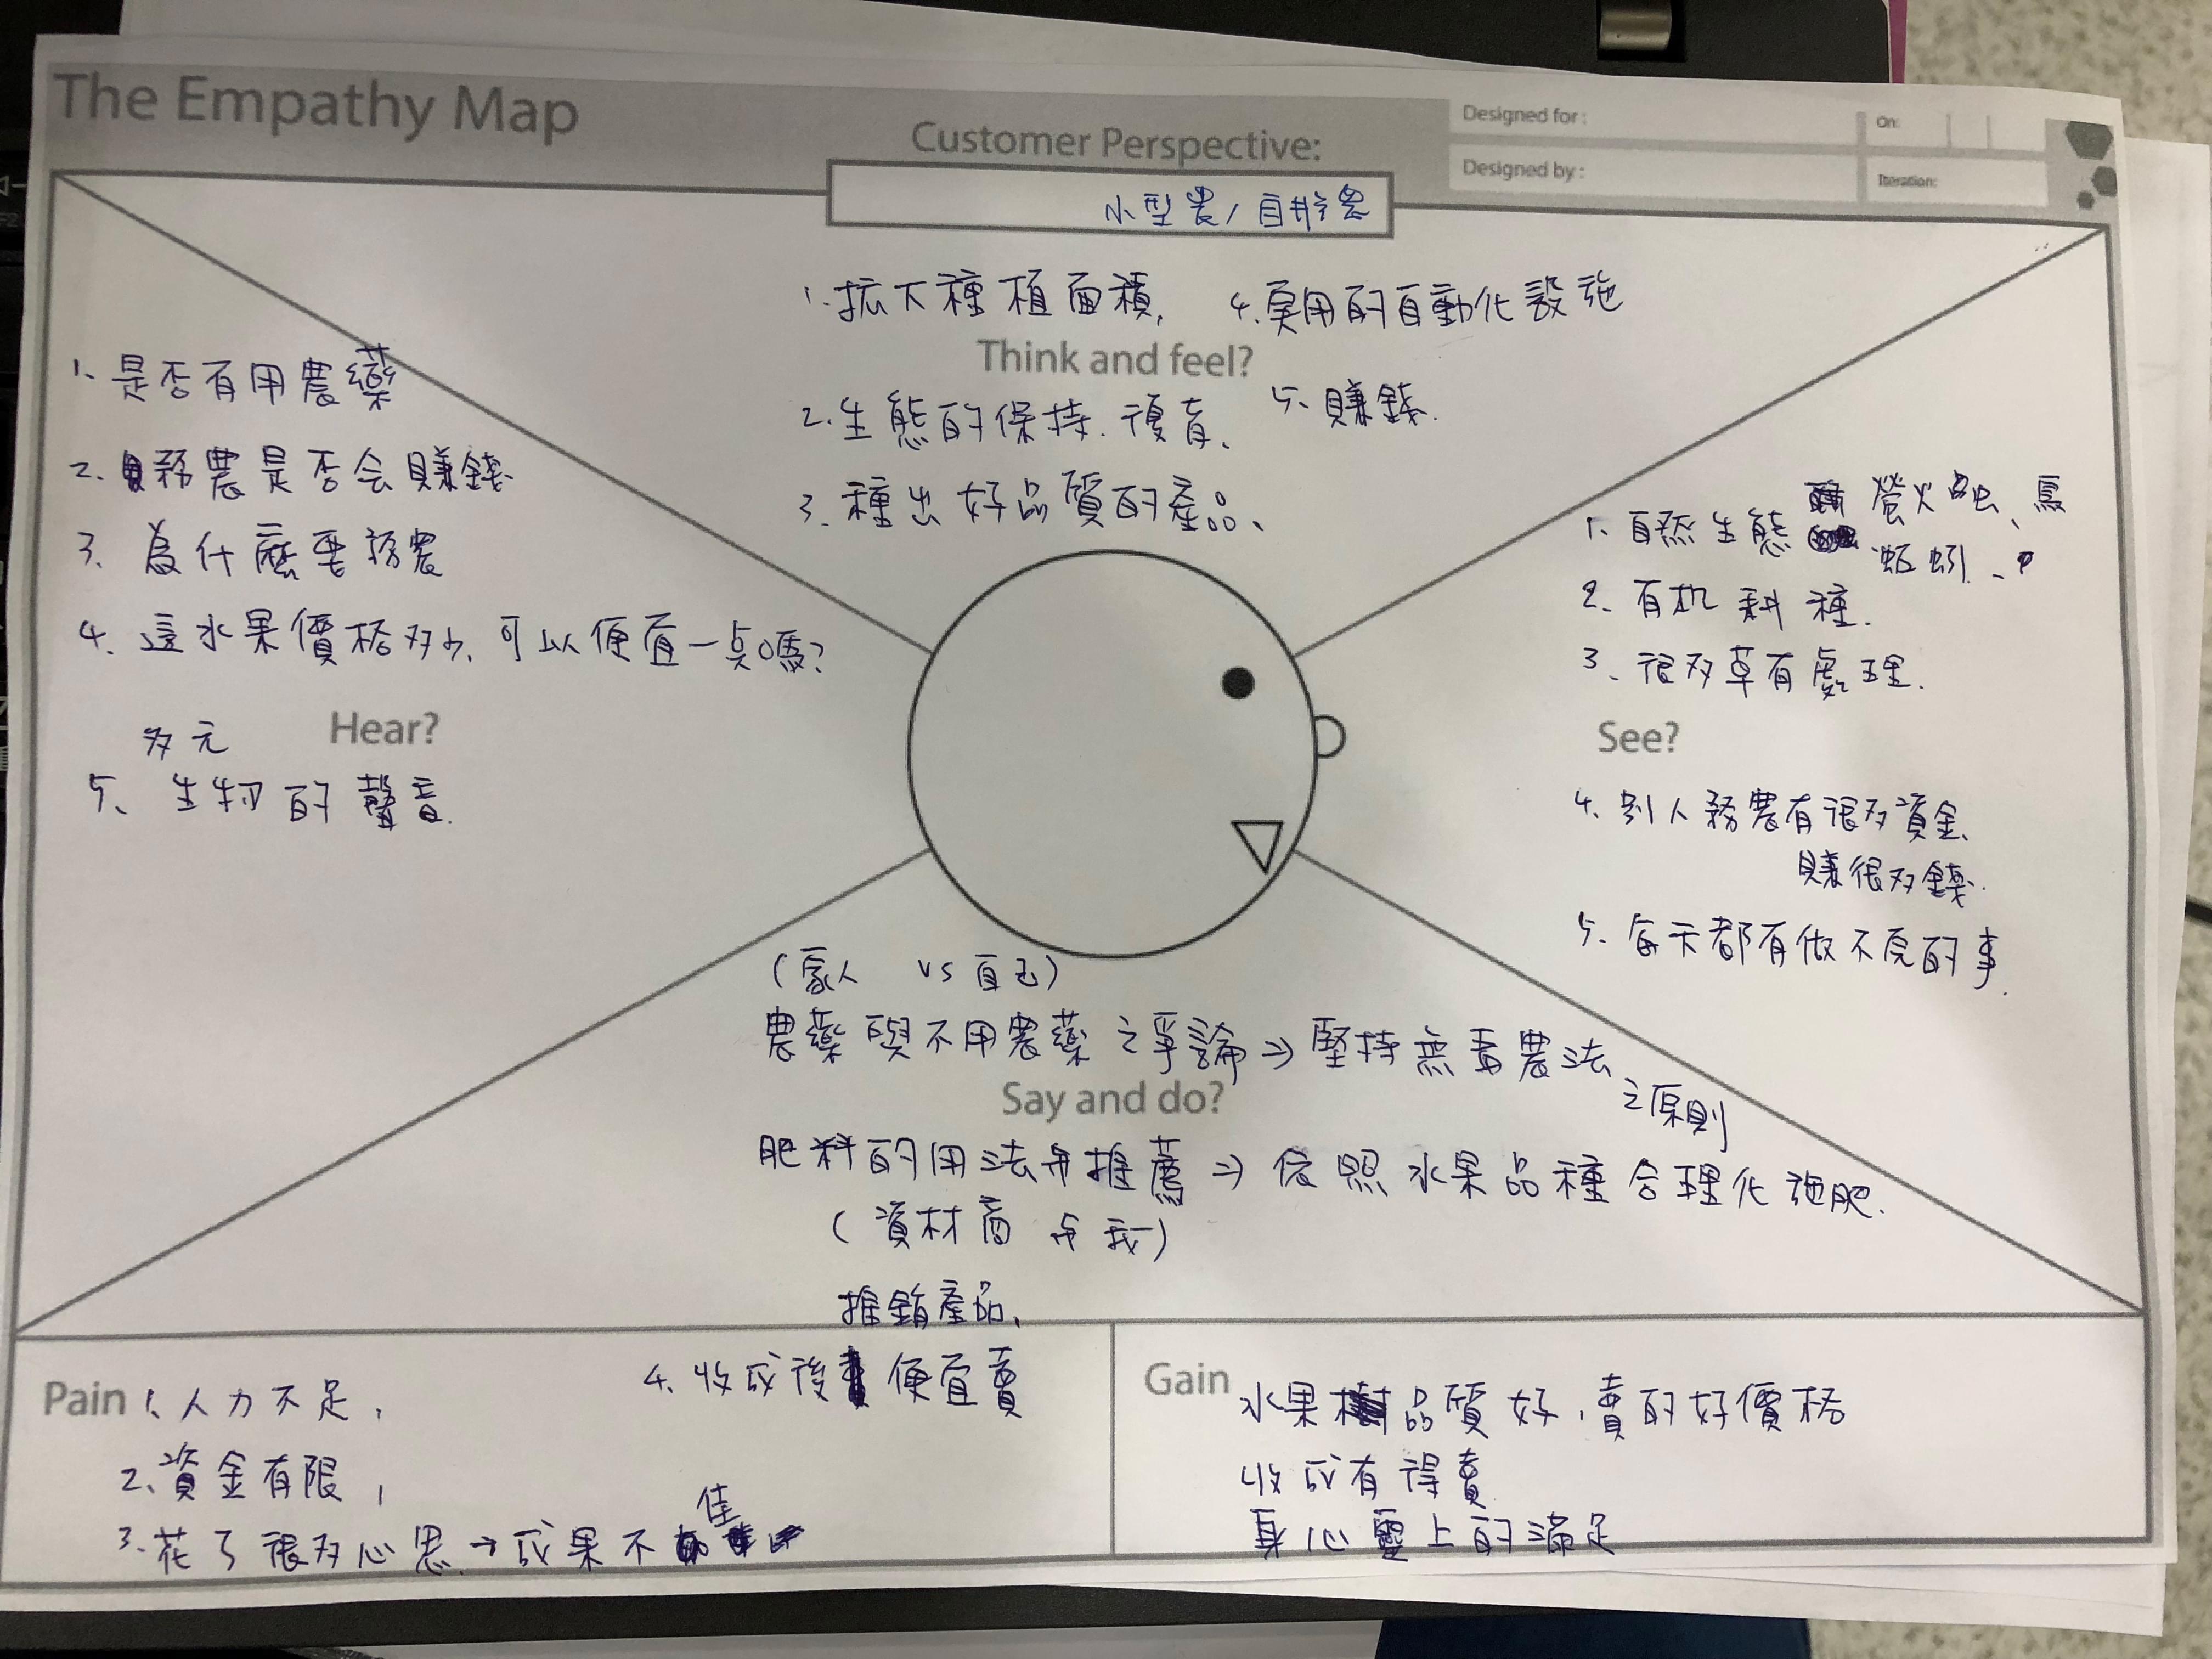 The Empathy Map
Customer Perspective:
小型農/自耕農
Designed for:
On:
Designed by:
Iteration:
1. 拡大種植面積,
4. 実用的自動化設施
Think and feel?
2. 生態的保持.復育、
5. 賺錢.
3. 種出好品質的產品、
1. 是否有用農藥
2. 務農是否会賺錢
3. 為什麼要務農
4. 這水果價格多少、可以便宜一点嗎?
Hear?
多元
5、生物的聲音.
1. 自然生態 螢火虫、鳥
蚯蚓、
2. 有机耕種.
3. 很多草有處理.
See?
4. 別人務農有很多資金、
賺很多錢.
5. 每天都有做不完的事.
(家人 vs 自己)
農藥與不用農藥之爭論⇒堅持無毒農法
之原則
Say and do?
肥料的用法与推薦⇒依照水果品種合理化施肥.
(資材商与我)
推銷產品、
Pain
1、人力不足,
2、資金有限,
3. 花了很多心思→成果不佳
4. 收成後便宜賣
Gain
水果品質好,賣的好價格
收成有得賣
身心靈上的滿足